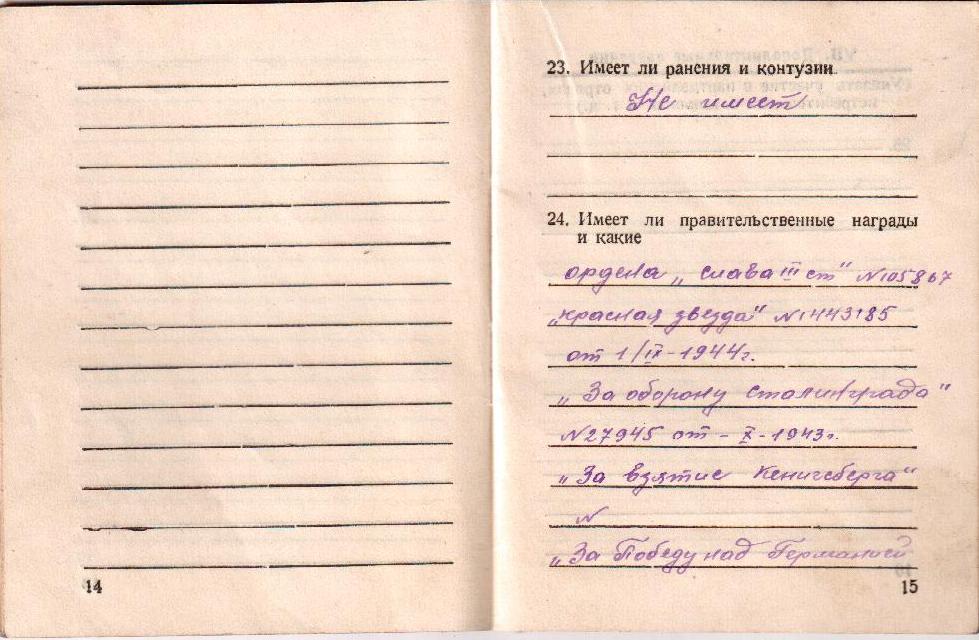 14
23. Имеет ли ранения и контузии
Не имеет
24. Имеет ли правительственные награды
и какие
ордена „слава III ст" №105867
„красная звезда" №1443185
от 1/IX-1944г.
„За оборону Сталинграда"
№27945 от - X - 1943г.
„За взятие Кенигсберга"
№
„За Победу над Германией
15